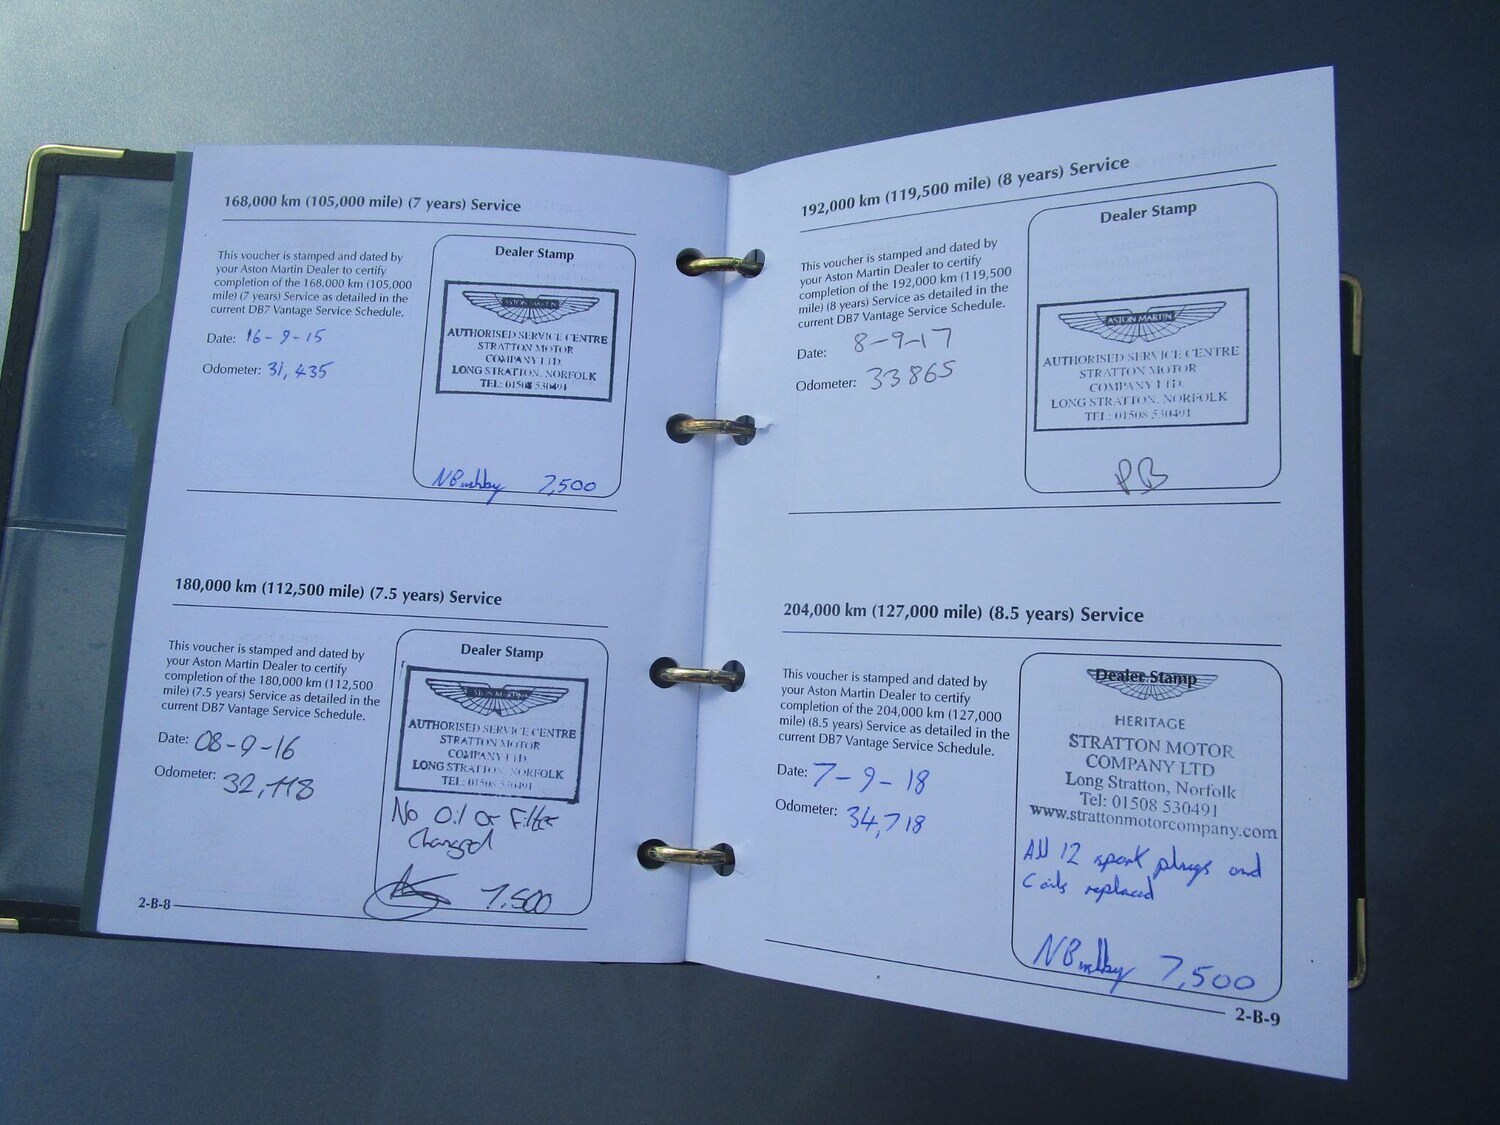 168,000 km (105,000 mile) (7 years) Service
This voucher is stamped and dated by
your Aston Martin Dealer to certify
completion of the 168,000 km (105,000
mile) (7 years) Service as detailed in the
current DB7 Vantage Service Schedule.
Date: 16-9-15
Odometer: 31,435
Dealer Stamp
ASTON MARTIN
AUTHORISED SERVICE CENTRE
STRATTON MOTOR
COMPANY LTD.
LONG STRATTON, NORFOLK
TEL: 01508 530491
7,500
180,000 km (112,500 mile) (7.5 years) Service
This voucher is stamped and dated by
your Aston Martin Dealer to certify
completion of the 180,000 km (112,500
mile) (7.5 years) Service as detailed in the
current DB7 Vantage Service Schedule.
Date: 08-9-16
Odometer: 32,118
Dealer Stamp
ASTON MARTIN
AUTHORISED SERVICE CENTRE
STRATTON MOTOR
COMPANY LTD.
LONG STRATTON, NORFOLK
TEL: 01508 530491
No Oil or Filter
Changed
7,500
2-B-8
192,000 km (119,500 mile) (8 years) Service
This voucher is stamped and dated by
your Aston Martin Dealer to certify
completion of the 192,000 km (119,500
mile) (8 years) Service as detailed in the
current DB7 Vantage Service Schedule.
Date: 8-9-17
Odometer: 33865
Dealer Stamp
ASTON MARTIN
AUTHORISED SERVICE CENTRE
STRATTON MOTOR
COMPANY LTD.
LONG STRATTON, NORFOLK
TEL: 01508 530491
PB
204,000 km (127,000 mile) (8.5 years) Service
This voucher is stamped and dated by
your Aston Martin Dealer to certify
completion of the 204,000 km (127,000
mile) (8.5 years) Service as detailed in the
current DB7 Vantage Service Schedule.
Date: 7-9-18
Odometer: 34,718
Dealer Stamp
HERITAGE
STRATTON MOTOR
COMPANY LTD
Long Stratton, Norfolk
Tel: 01508 530491
www.strattonmotorcompany.com
All 12 spark plugs and
Coils replaced
7,500
2-B-9